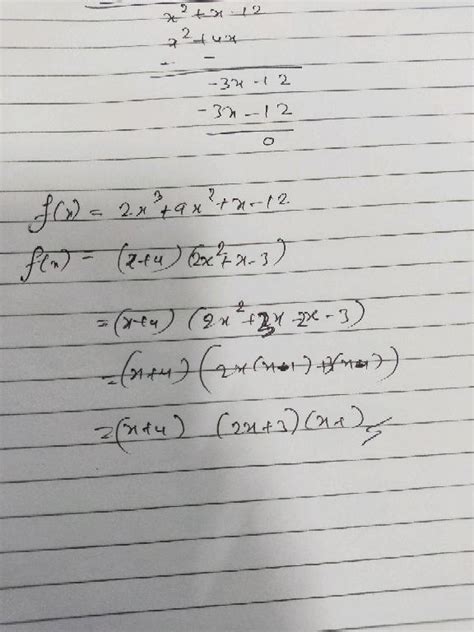 x² + x - 12
x² + 4x
- -
-3x - 12
-3x - 12
0
f(x) = 2x³ + 9x² + x - 12
f(x) = (x+4) (2x² + x - 3)
= (x+4) (2x² + 3x - 2x - 3)
= (x+4) (2x(x-1) + 3(x-1))
= (x+4) (2x+3) (x-1)